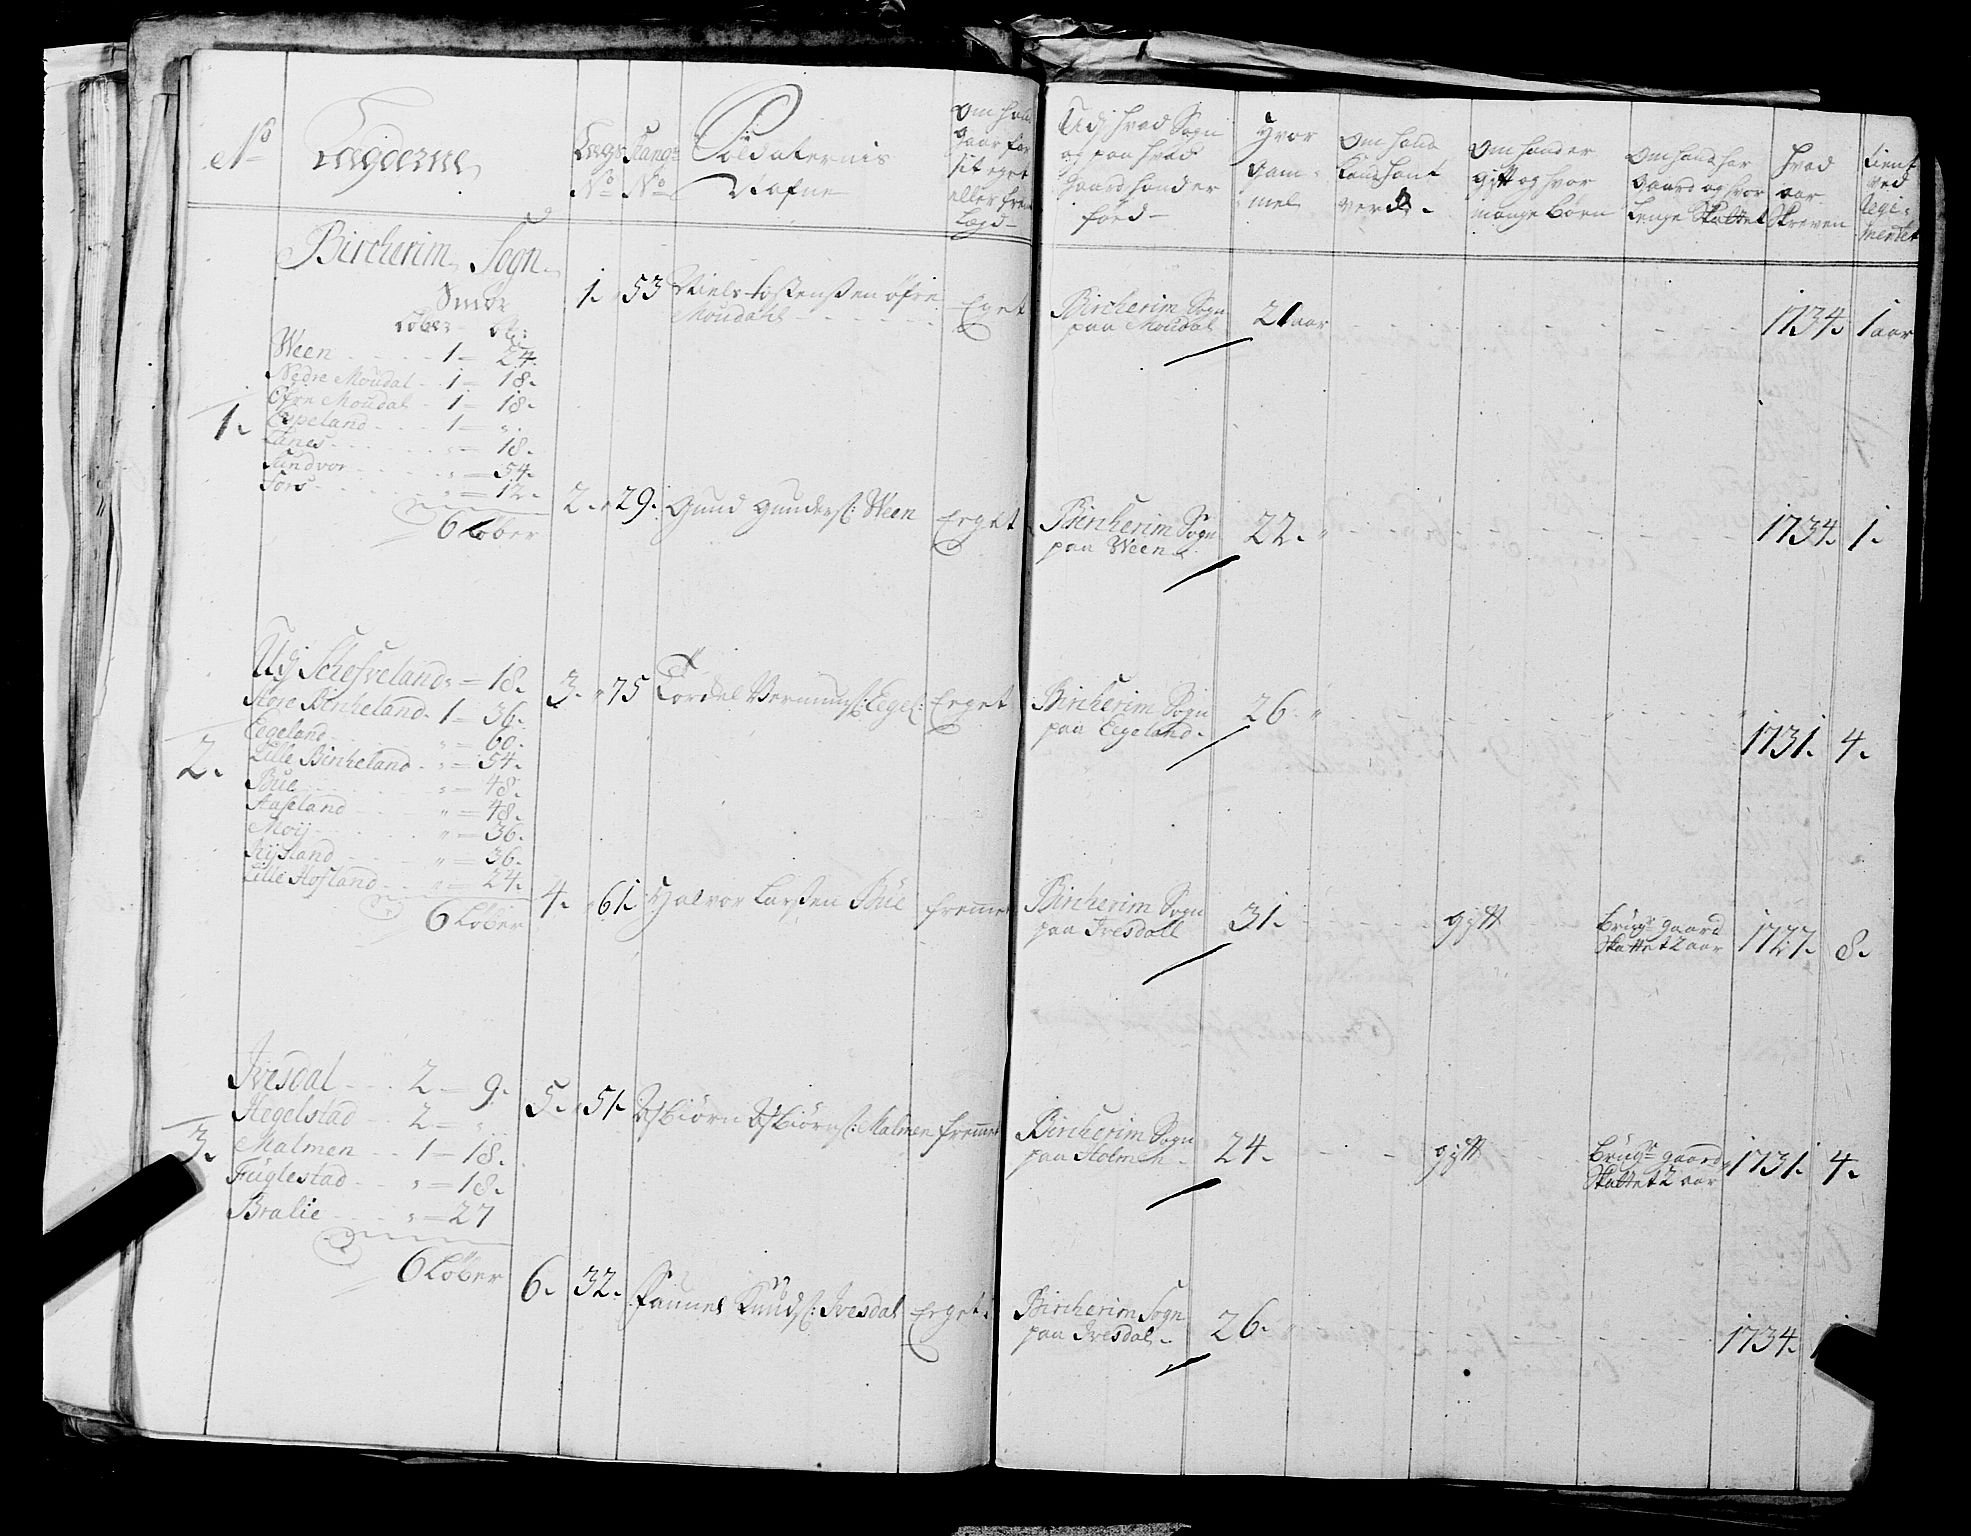 No
Lægderne
Lægs No
Rangs No
Soldaternis Nafne
Om hand gaar for sit eget eller frem Legd
Udj hvad Sogn og paa hvad Gaard hand er føed
Hvor gammel
Om hand
Om hand er gift og hvor mange børn
Om hand har gaard og hvor lenge Skattet
Hvad aar Skreven
tient ved Regimentet
Bircherim Sogn
Smør
Løber
Ween 1 = 24.
Nedre Moudal 1 = 18.
Øfre Moudal 1 = 18.
1. Espeland 1 = ".
Lanes " = 18.
Sandvor " = 54.
Fors " = 12.
6 Løber
1. 53 Niels Tostenssen øfre Moudahl Eget Bircherim Sogn paa Moudal 21 aar 1734. 1 aar
2. 29. Gund Gunders: Ween Erget Bircherim Sogn paa Ween 22. " 1734. 1.
Udj Schefveland " = 18.
Store Bircheland 1 = 36.
Eegeland " = 60.
2. Lille Bircheland " = 54.
Bue " = 48.
Aaseland " = 48.
Moij " = 36.
Rijsland " = 36.
Lille Hofland " = 24.
6 Løber
3. 75 Tordel Vermunds: Egel: Erget Bircherim Sogn paa Eegeland. 26. " 1731. 4.
4. 61. Halvor Larssen Bue fremmet Bircherim Sogn paa Ivesdall 31. gift Brugr gaard Skattet 2 aar 1727. 8.
Ivesdal 2 = 9.
Hegelstad 2 = "
3. Malmen 1 = 18.
Fuglestad " = 18.
Bralie " = 27
6 Løber
5. 51. Asbiørn Asbiørns: Malmen fremmet Bircherim Sogn paa Holmen 24. gift Brugr gaard Skattet 2 aar 1731. 4.
6. 32. Knuds: Ivesdal Erget. Bircherim Sogn paa Ivesdal. 26. " 1734.